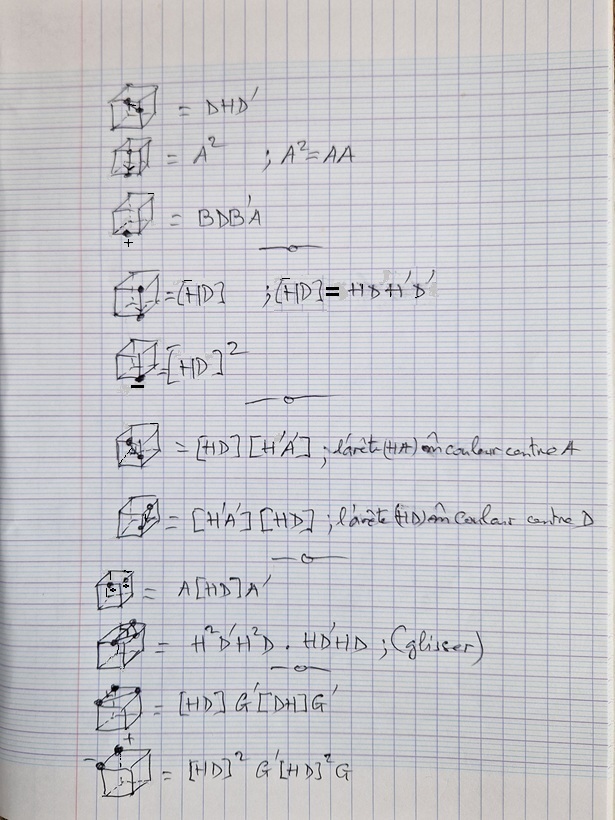 = DHD'
= A² ; A²=AA
= BDB'A
+
=[HD] ; [HD]= HDH'D'
=[HD]²
-
= [HD][H'A'] ; l'arête(HA) m̂ couleur centre A
= [H'A'][HD] ; l'arête(HD) m̂ couleur centre D
= A[HD]A'
= H²D'H²D . HD'HD ; (glisser)
= [HD] G'[DH]G'
- +
= [HD]² G'[HD]²G